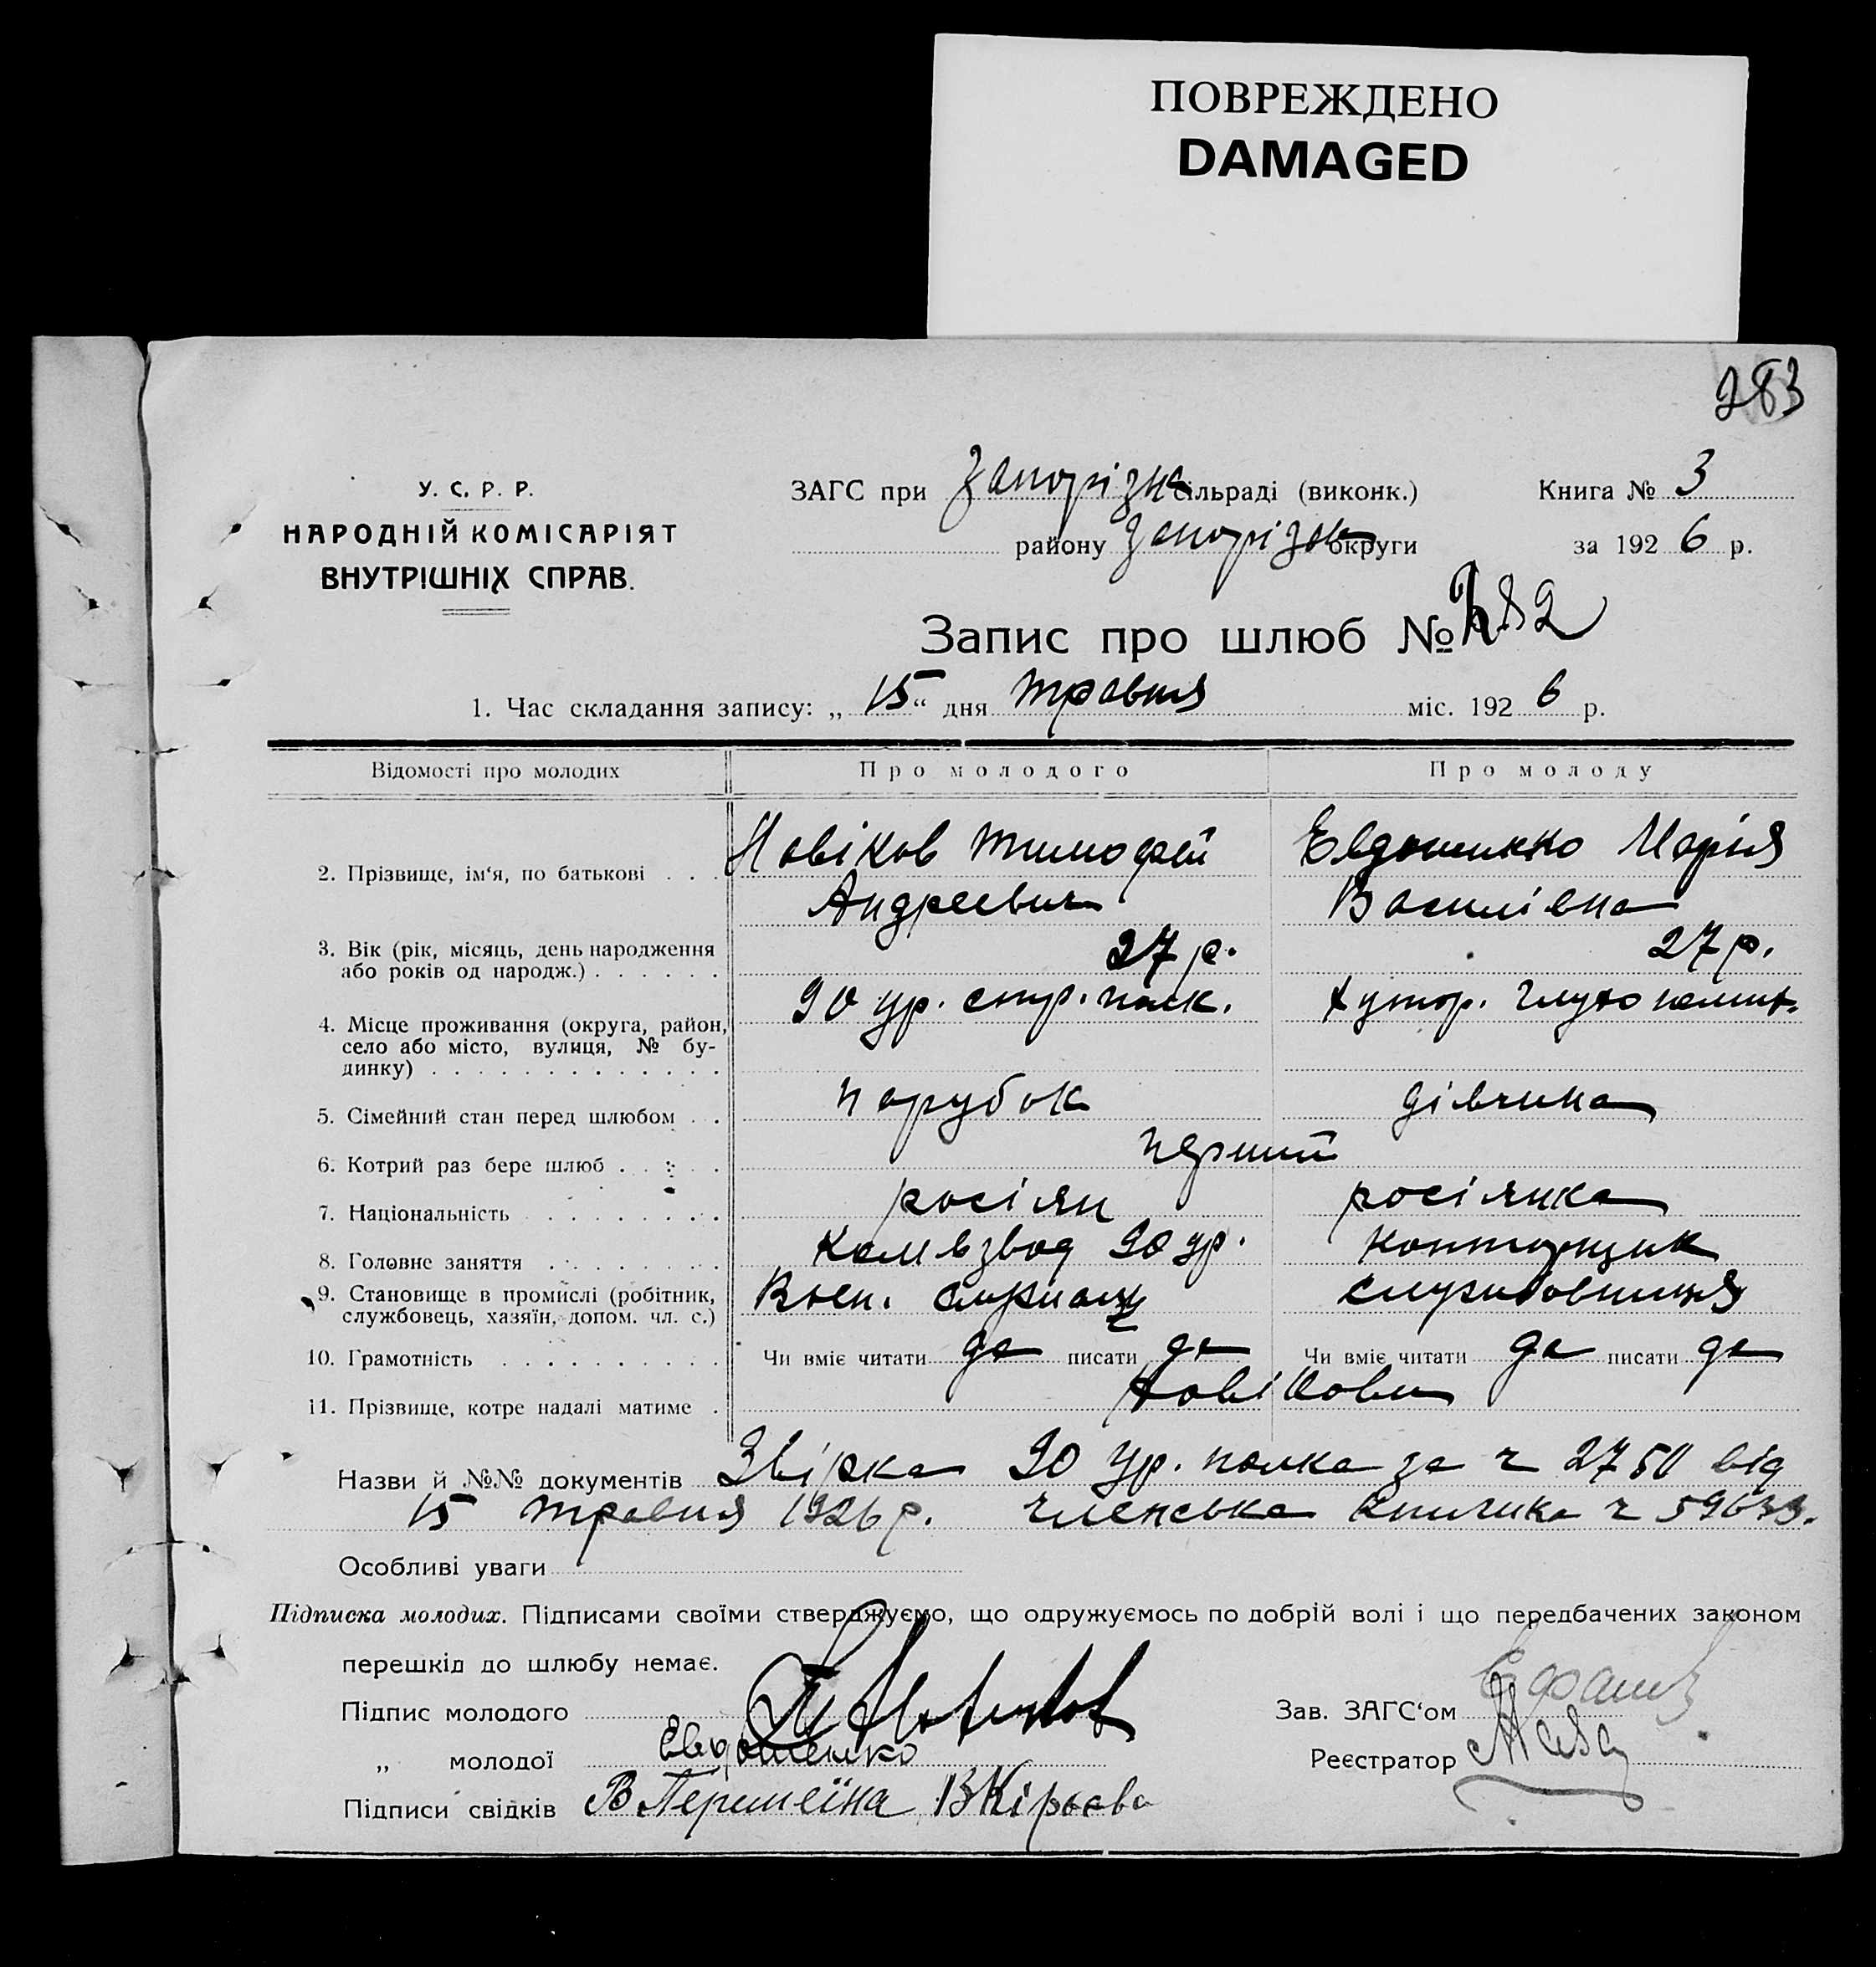 ПОВРЕЖДЕНО
DAMAGED
283
У. С. Р. Р.
НАРОДНІЙ КОМІСАРІЯТ
ВНУТРІШНІХ СПРАВ.
ЗАГС при Запорізк сільраді (виконк.)
Книга № 3
району Запорізьк округи
за 192 6 р.
Запис про шлюб № 282
1. Час складання запису: „ 15 “ дня травня міс. 192 6 р.
Відомості про молодих
Про молодого
Про молоду
2. Прізвище, ім‘я, по батькові . . .
Новіков Тимофей
Андреевич
Евдошенко Марія
Василівна
3. Вік (рік, місяць, день народження
або років од народж.) . . . . . .
27 р.
27 р.
4. Місце проживання (округа, район,
село або місто, вулиця, № бу-
динку) . . . . . . . . . . . . .
90 ур. стр. полк.
хутор.
5. Сімейний стан перед шлюбом . .
парубок
дівчина
6. Котрий раз бере шлюб . . . .
перший
7. Національність . . . . . . . .
росіян
росіянка
8. Головне заняття . . . . . . . .
Комвзвод 90 ур.
конторщик
9. Становище в промислі (робітник,
службовець, хазяїн, допом. чл. с.)
Воен. служащ
службовниця
10. Грамотність . . . . . . . . . .
Чи вміє читати да писати да
Чи вміє читати да писати да
11. Прізвище, котре надалі матиме .
Новікови
Назви й №№ документів Звірка 90 ур. полка за ч 2750 від
15 травня 1926 р. членська книжка ч 59633.
Особливі уваги
Підписка молодих. Підписами своїми стверджуємо, що одружуємось по добрій волі і що передбачених законом
перешкід до шлюбу немає.
Підпис молодого Т Новиков
Зав. ЗАГС‘ом
„ молодої Евдошенко
Реєстратор
Підписи свідків В Першеїна В Кірьева